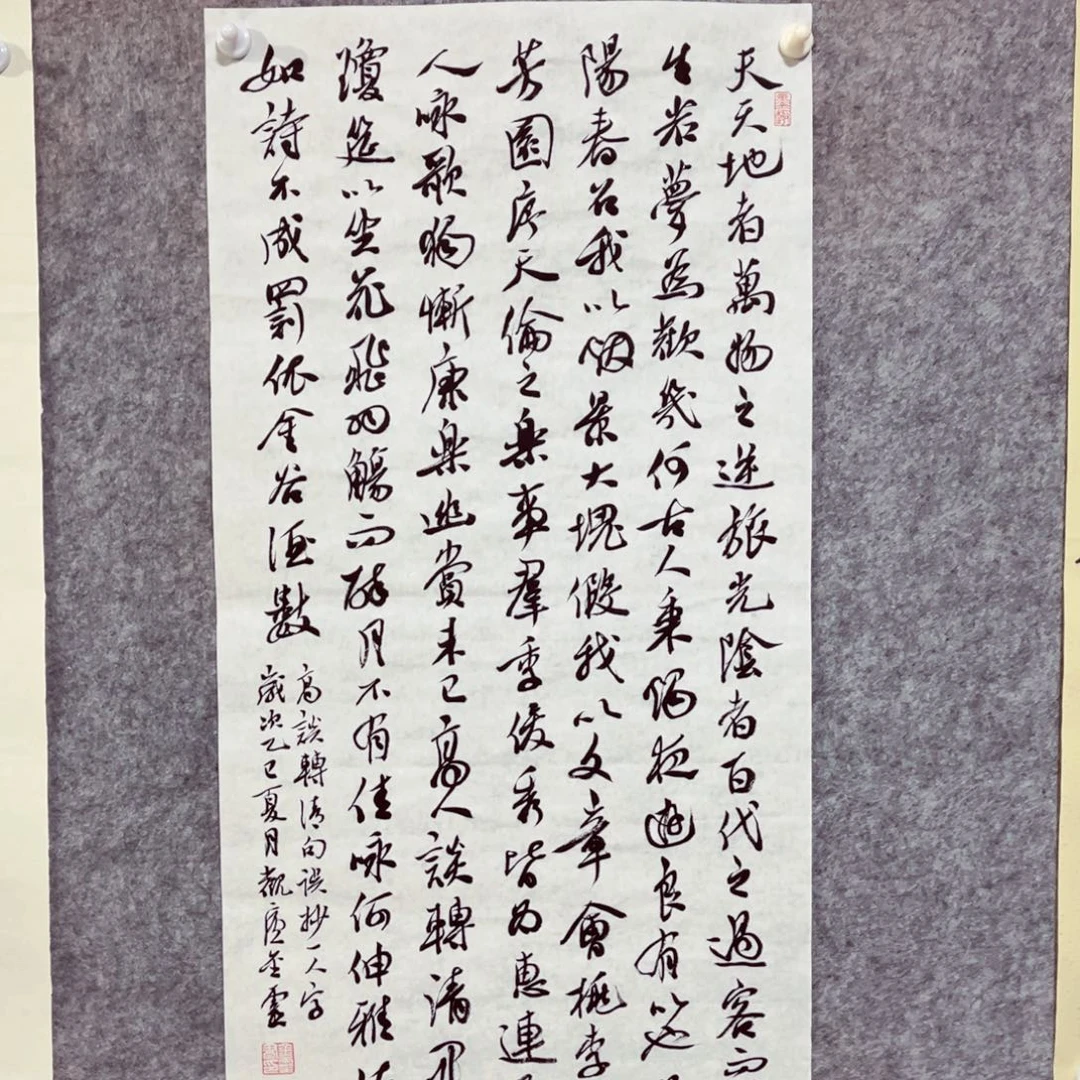 夫天地者萬物之逆旅光陰者百代之過客而
生若夢為歡幾何古人秉燭夜遊良有以也
陽春召我以烟景大塊假我以文章會桃李
芳園序天倫之樂事羣季俊秀皆為惠連
人詠歌獨慚康樂幽賞未已高人談轉清
瓊筵以坐花飛羽觴而醉月不有佳詠何伸雅
如詩不成罰依金谷酒數
高談轉清句誤抄一人字
歲次乙巳夏月